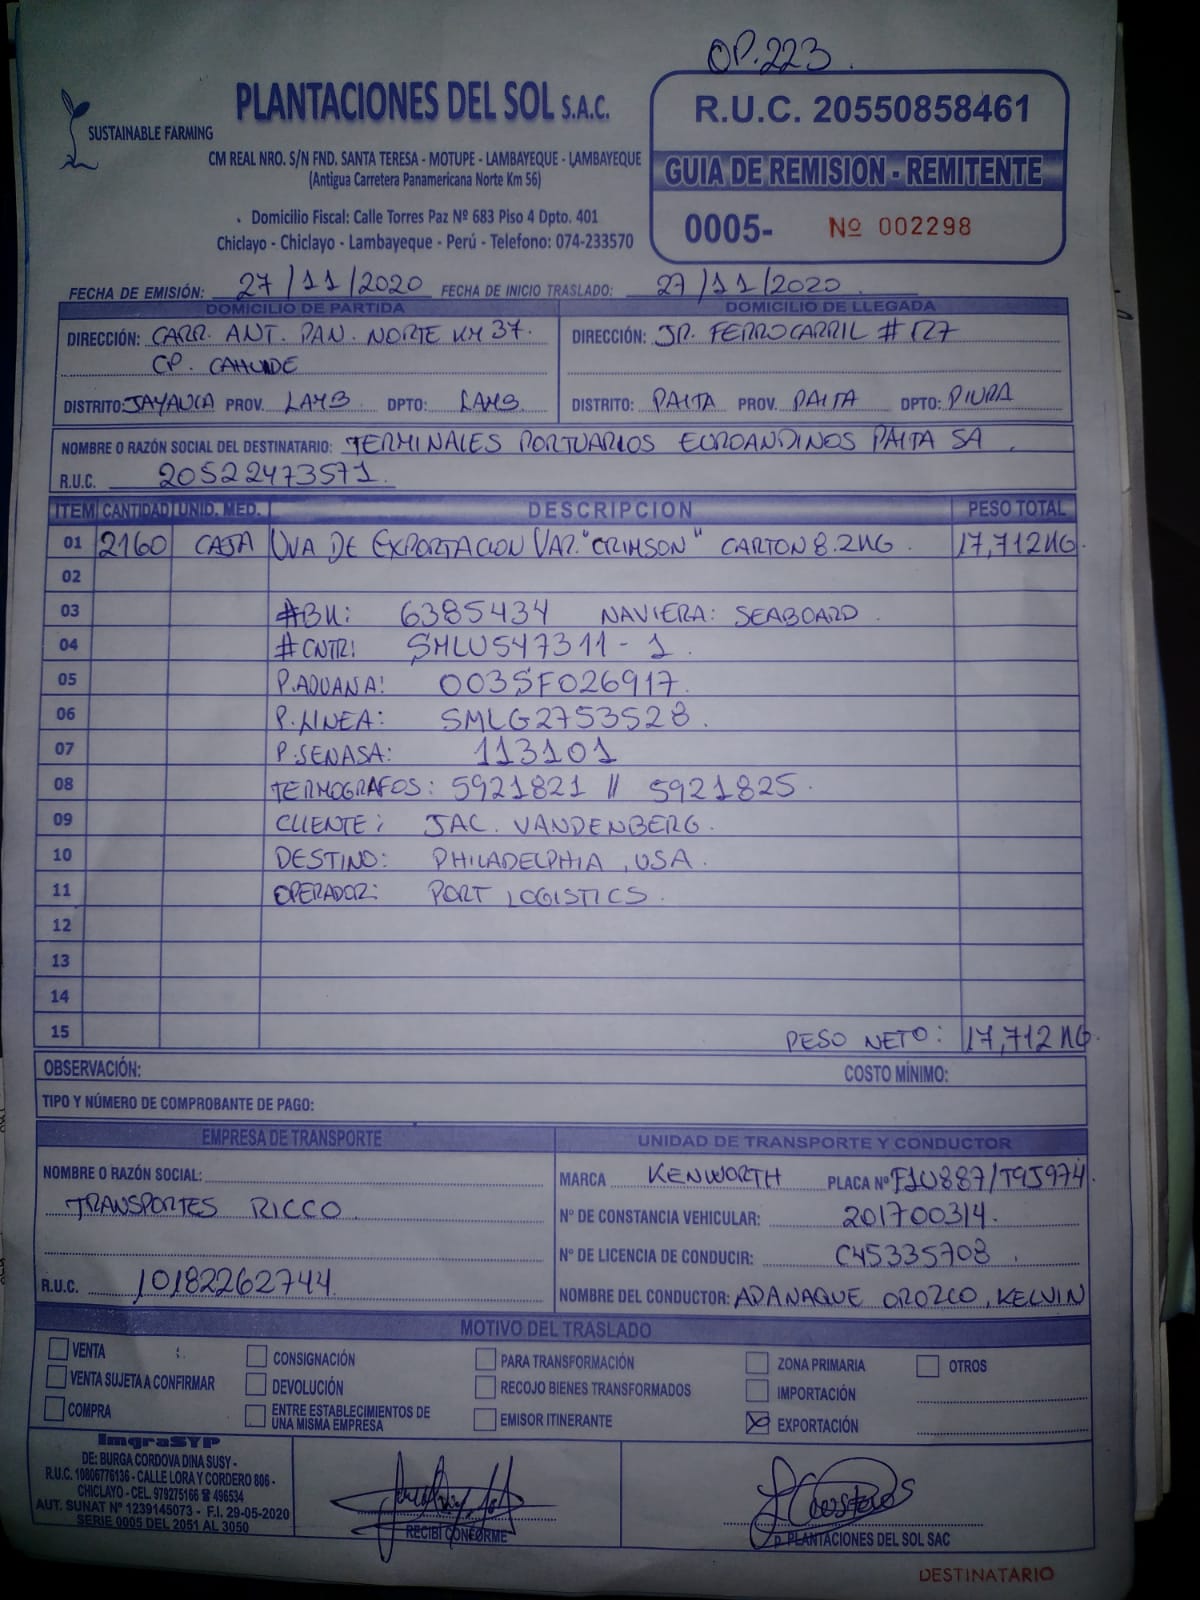 OP. 223.
SUSTAINABLE FARMING
PLANTACIONES DEL SOL S.A.C.
CM REAL NRO. S/N FND. SANTA TERESA - MOTUPE - LAMBAYEQUE - LAMBAYEQUE
(Antigua Carretera Panamericana Norte Km 56)
Domicilio Fiscal: Calle Torres Paz Nº 683 Piso 4 Dpto. 401
Chiclayo - Chiclayo - Lambayeque - Perú - Telefono: 074-233570
R.U.C. 20550858461
GUIA DE REMISION - REMITENTE
0005- Nº 002298
FECHA DE EMISIÓN: 27/11/2020 FECHA DE INICIO TRASLADO: 27/11/2020
DOMICILIO DE PARTIDA
DIRECCIÓN: CARR. ANT. PAN. NORTE KM 37.
CP. CAHUIDE
DISTRITO: JAYANCA PROV. LAMB DPTO: LAMB.
DOMICILIO DE LLEGADA
DIRECCIÓN: JR. FERROCARRIL # 127
DISTRITO: PAITA PROV. PAITA DPTO: PIURA
NOMBRE O RAZÓN SOCIAL DEL DESTINATARIO: TERMINALES PORTUARIOS EUROANDINOS PAITA SA.
R.U.C. 20522473571.
ITEM CANTIDAD UNID. MED. DESCRIPCION PESO TOTAL
01 2160 CAJA UVA DE EXPORTACION VAR. "CRIMSON" CARTON 8.2KG. 17,712KG
02
03 #BK: 6385434 NAVIERA: SEABOARD.
04 #CNTR: SMLU547311-1.
05 P.ADUANA: 003SF026917.
06 P.LINEA: SMLG2753528.
07 P.SENASA: 113101
08 TERMOGRAFOS: 5921821 // 5921825.
09 CLIENTE: JAC. VANDENBERG.
10 DESTINO: PHILADELPHIA, USA.
11 OPERADOR: PORT LOGISTICS.
12
13
14
15 PESO NETO: 17,712 KG.
OBSERVACIÓN: COSTO MÍNIMO:
TIPO Y NÚMERO DE COMPROBANTE DE PAGO:
EMPRESA DE TRANSPORTE
NOMBRE O RAZÓN SOCIAL:
TRANSPORTES RICCO
R.U.C. 10182262744
UNIDAD DE TRANSPORTE Y CONDUCTOR
MARCA KENWORTH PLACA Nº F1U887/T9J974
Nº DE CONSTANCIA VEHICULAR: 201700314.
Nº DE LICENCIA DE CONDUCIR: C45335708.
NOMBRE DEL CONDUCTOR: ADANAQUE OROZCO, KELVIN
MOTIVO DEL TRASLADO
VENTA
VENTA SUJETA A CONFIRMAR
COMPRA
CONSIGNACIÓN
DEVOLUCIÓN
ENTRE ESTABLECIMIENTOS DE
UNA MISMA EMPRESA
PARA TRANSFORMACIÓN
RECOJO BIENES TRANSFORMADOS
EMISOR ITINERANTE
ZONA PRIMARIA
IMPORTACIÓN
EXPORTACIÓN
OTROS
ImgraSYP
DE: BURGA CORDOVA DINA SUSY -
R.U.C. 10806776136 - CALLE LORA Y CORDERO 806 -
CHICLAYO - CEL. 979275166 ☎ 496534
AUT. SUNAT Nº 1239145073 - F.I. 29-05-2020
SERIE 0005 DEL 2051 AL 3050
RECIBÍ CONFORME
P. PLANTACIONES DEL SOL SAC
DESTINATARIO